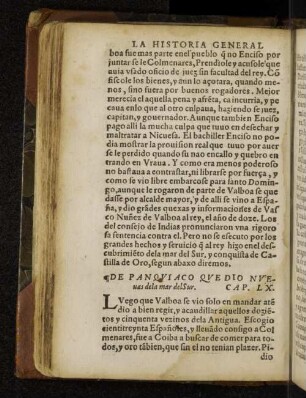 LA HISTORIA GENERAL
boa fue mas parte enel pueblo q̃ no Enciso por
juntar se le Colmenares, Prendiole y acusole que
auia vsado oficio de juez sin facultad del rey. Cõ
fiscole los bienes, y aun lo açotara, quando me-
nos, sino fuera por buenos rogadores. Mejor
merecia el aquella pena y afrẽta, ca incurria, y pe
caua enlo que al otro culpaua, haziendo se juez,
capitan, y gouernador. Aunque tambien Enciso
pago alli la mucha culpa que tuuo en desechar y
maltratar a Nicuesa. El bachiller Enciso no po-
dia mostrar la prouision real que tuuo por auer
se le perdido quando su nao encallo y quebro en
trando en Vraua. Y como era menos poderoso
no bastaua a contrastar, ni librar se por fuerça, y
como se vio libre embarcose para santo Domin-
go, aunque le rogaron de parte de Valboa se que
dasse por alcalde mayor, y de alli se vino a Espa-
ña, y dio grãdes quexas y informaciones de Vas
co Nuñez de Valboa al rey, el año de doze. Los
del consejo de Indias pronunciaron vna rigoro
sa sentencia contra el. Pero no se executo por los
grandes hechos y seruicio q̃ al rey hizo enel des-
cubrimiẽto dela mar del Sur, y conquista de Ca-
stilla de Oro, segun abaxo diremos.
¶DE PANQVIACO QVE DIO NVE-
uas dela mar del Sur. CAP. LX.
LVego que Valboa se vio solo en mandar atẽ
dio a bien regir, y acaudillar aquellos doziẽ-
tos y cinquenta vezinos dela Antigua. Escogio
cientitreynta Españoles, y lleuãdo consigo a Col
menares, fue a Coiba a buscar de comer para to-
dos, y oro tãbien, que sin el no tenian plazer. Pi-
dio